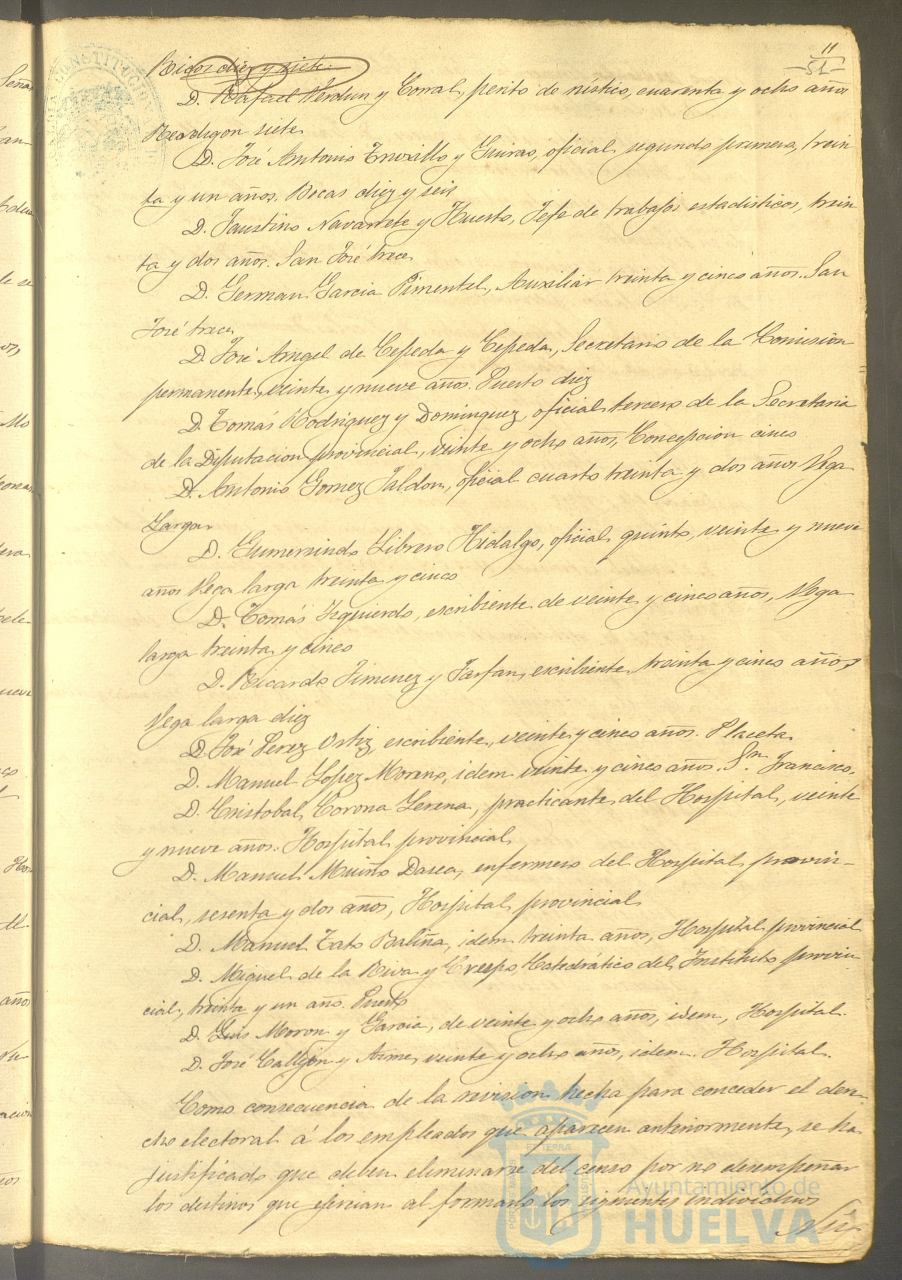 11
51
Ricos diez y siete.
D. Rafael Verdun y Corral, perito de rústico, cuarenta y ocho años
siete
D. José Antonio Truxillo y Guiras, oficial segundo primero, trein-
ta y un años. Bocas diez y seis
D. Faustino Navarrete y Huerto, Jefe de trabajos estadisticos, trein
ta y dos años. San José trece
D. German Garcia Pimentel, Auxiliar treinta y cinco años. San
José trece
D. José Angel de Cepeda y Cepeda, Secretario de la Comision
permanente, veinte y nueve años. Puerto diez
D. Tomás Rodriguez y Dominguez, oficial tercero de la Secretaria
de la Diputacion provincial, veinte y ocho años, Concepcion cinco
D. Antonio Gomez Jaldon, oficial cuarto treinta y dos años Vega
Larga
D. Gumersindo Librero Hidalgo, oficial quinto, veinte y nueve
años Vega larga treinta y cinco
D. Tomás Izquierdo, escribiente de veinte y cinco años, Vega
larga treinta y cinco
D. Ricardo Jimenez y Farfan, escribiente, treinta y cinco años,
Vega larga diez
D. José Perez Ortiz, escribiente, veinte y cinco años. Placeta
D. Manuel Lopez Moreno, idem veinte y cinco años. Sn Francisco.
D. Cristobal Corona Lerena, practicante del Hospital, veinte
y nueve años. Hospital provincial
D. Manuel Muiño Dasea, enfermero del Hospital provin-
cial, sesenta y dos años, Hospital provincial
D. Manuel Tato Baliña, idem treinta años, Hospital provincial
D. Miguel de la Riva y Crespo, Catedrático del Instituto provin-
cial, treinta y un año. Puerto
D. Luis Moron y Garcia, de veinte y ocho años, idem, Hospital.
D. José Callejon y Asme, veinte y ocho años, idem. Hospital.
Como consecuencia de la revision hecha para conceder el dere-
cho electoral á los empleados que aparecen anteriormente, se ha
justificado que deben eliminarse del censo por no desempeñar
los destinos que ejercian al formarlo los siguientes individuos
Ayuntamiento de
HUELVA